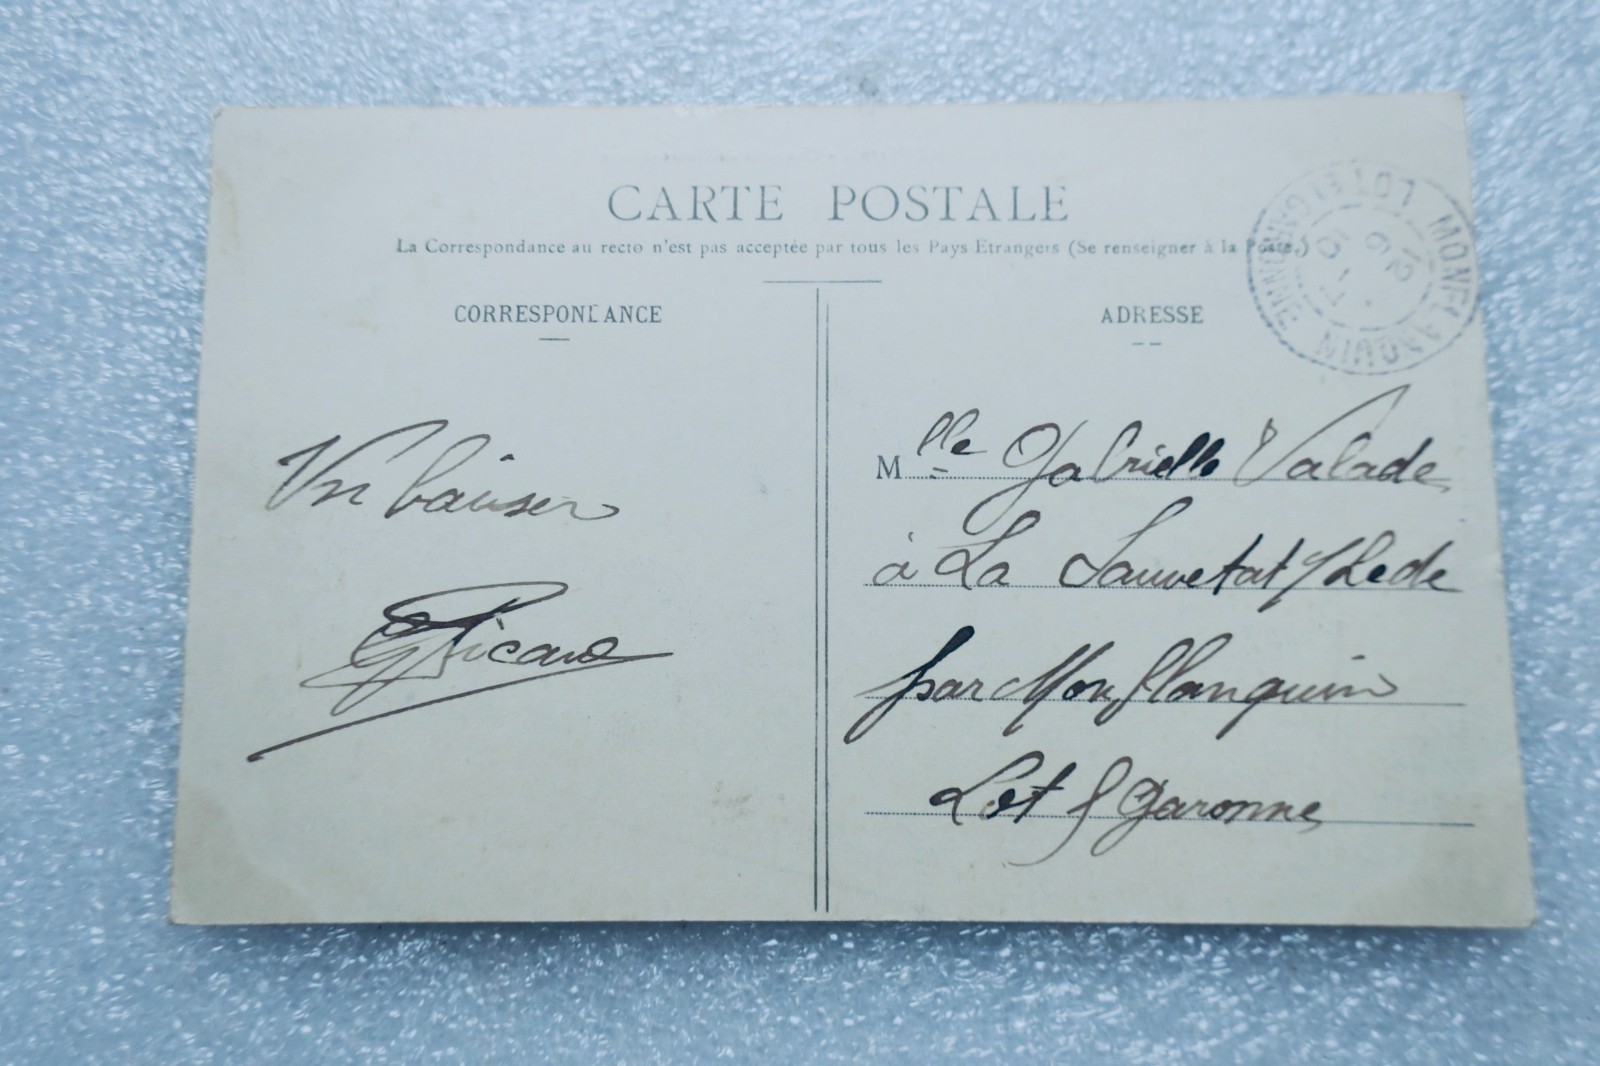 CARTE POSTALE
La Correspondance au recto n'est pas acceptée par tous les Pays Etrangers (Se renseigner à la Poste.)
CORRESPONDANCE
ADRESSE
MONFLANQUIN
LOT ET GARONNE
Un baiser
GPicard
Mlle Gabrielle Valade
à La Sauvetat s/Lède
par Monflanquin
Lot & Garonne